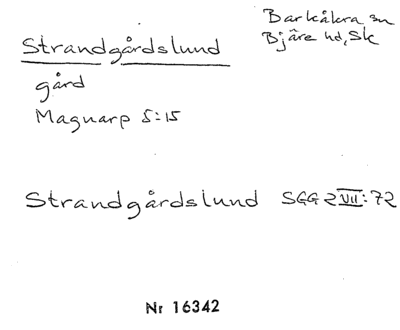 Strandgårdslund
gård
Magnarp 5:15
Barkåkra sn
Bjäre hd, Sk
Strandgårdslund SGG 2 VII: 72
Nr 16342